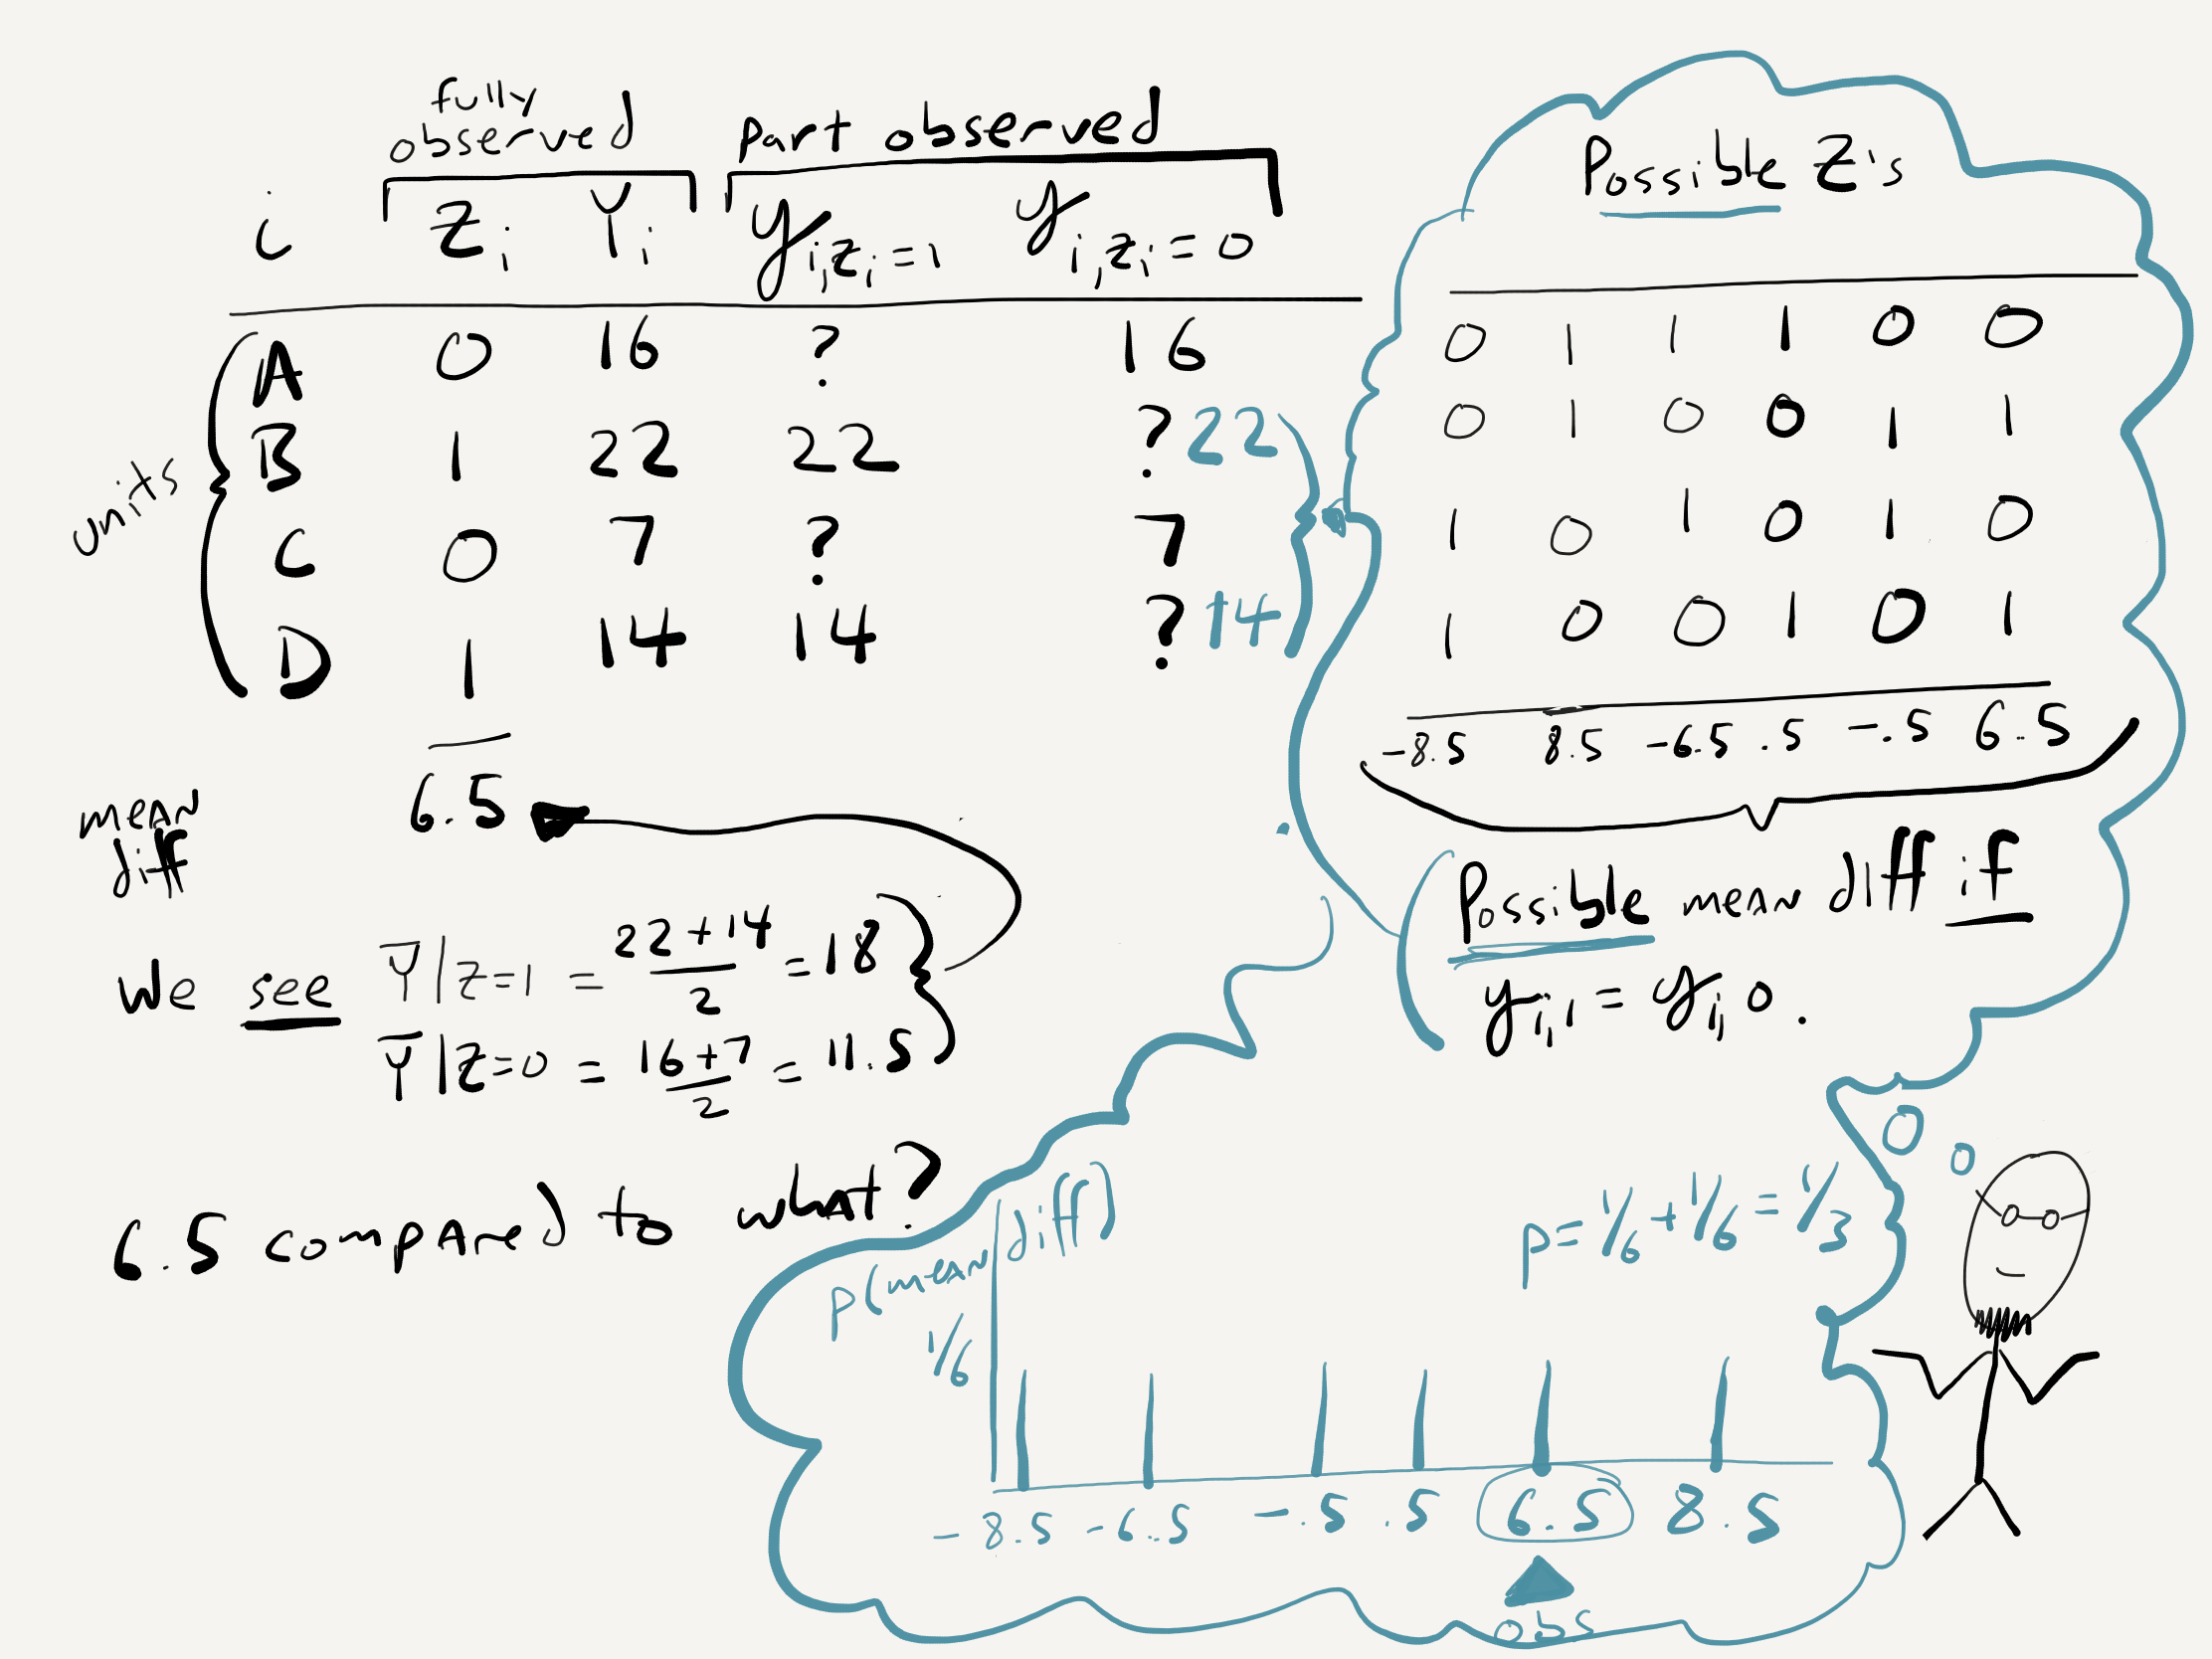 fully
observed
part observed
i Zi Yi yi,zi=1 yi,zi=0
units
A 0 16 ? 16
B 1 22 22 ? 22
C 0 7 ? 7
D 1 14 14 ? 14
mean
diff
6.5
We see Ȳ|Z=1 = 22+14/2 = 18
Ȳ|Z=0 = 16+7/2 = 11.5
6.5 compared to what?
Possible Z's
0 1 1 1 0 0
0 1 0 0 1 1
1 0 1 0 1 0
1 0 0 1 0 1
-8.5 8.5 -6.5 .5 -.5 6.5
Possible mean diff if
yi,1 = yi,0.
p(mean diff)
1/6
p = 1/6 + 1/6 = 1/3
-8.5 -6.5 -.5 .5 6.5 8.5
obs